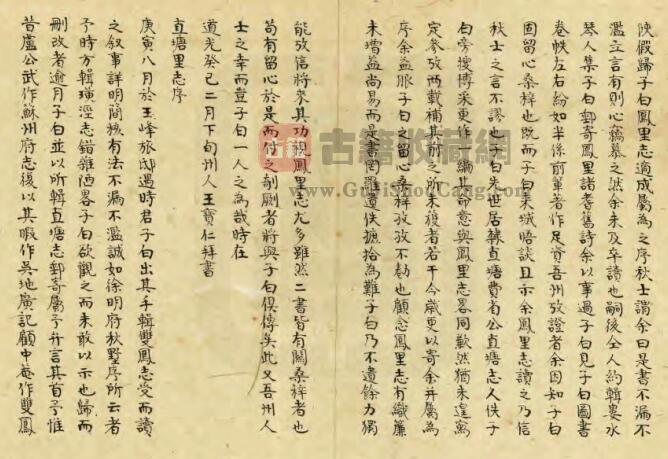 陝假歸子白志適成屬為之序秋士謂余曰是書不漏不
濫立言有則心竊慕之然余未及卒讀也嗣後仝人約輯婁水
琴人集子白郵寄鳳里諸耆舊詩余以事過子白見子白圖書
卷帙左右紛如半係前輩著作足資吾州攷證者余因知子白
固留心桑梓也既而子白來城晤談且示余鳳里志讀之乃信
秋士之言不謬也子白來世居隸直塘費省公直塘志人佚子
白旁搜博采更作一編寄意與鳳里志畧同歉然猶未遽寫
定參攷兩載補其所之所未復者若干今歲更以寄余并屬為
序余益服子白之留心桑梓孜孜不勌也顧念鳳里志有織簾
未增益尚易而是書罔羅遺佚摭拾為難子白乃不遺餘力獨
能攷信將來其功視鳳里志尤多雖然二書皆有關桑梓者也
苟有留心於是而付之剞劂者將與子白俱傳矣此又吾州人
士之幸而豈子白一人之為哉時在
道光癸巳二月下旬州人王寶仁拜書
直塘里志序
庚寅八月於玉峰旅邸遇時君子白出其手輯雙鳳志受而讀
之叙事詳明簡核有法不漏不濫誠如徐明府秋墅序所云者
予時方輯璜涇志錯雜陋畧子白欲觀之而未敢以示也歸而
刪改者逾月子白並以所輯直塘志郵寄屬予弁言其首予惟
昔盧公武作蘇州府志復以其暇作吳地廣記顧中菴作雙鳳
古籍收藏網
www.GujiShouCang.com